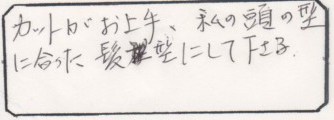 カットがお上手、私の頭の型
に合った髪型にして下さる.